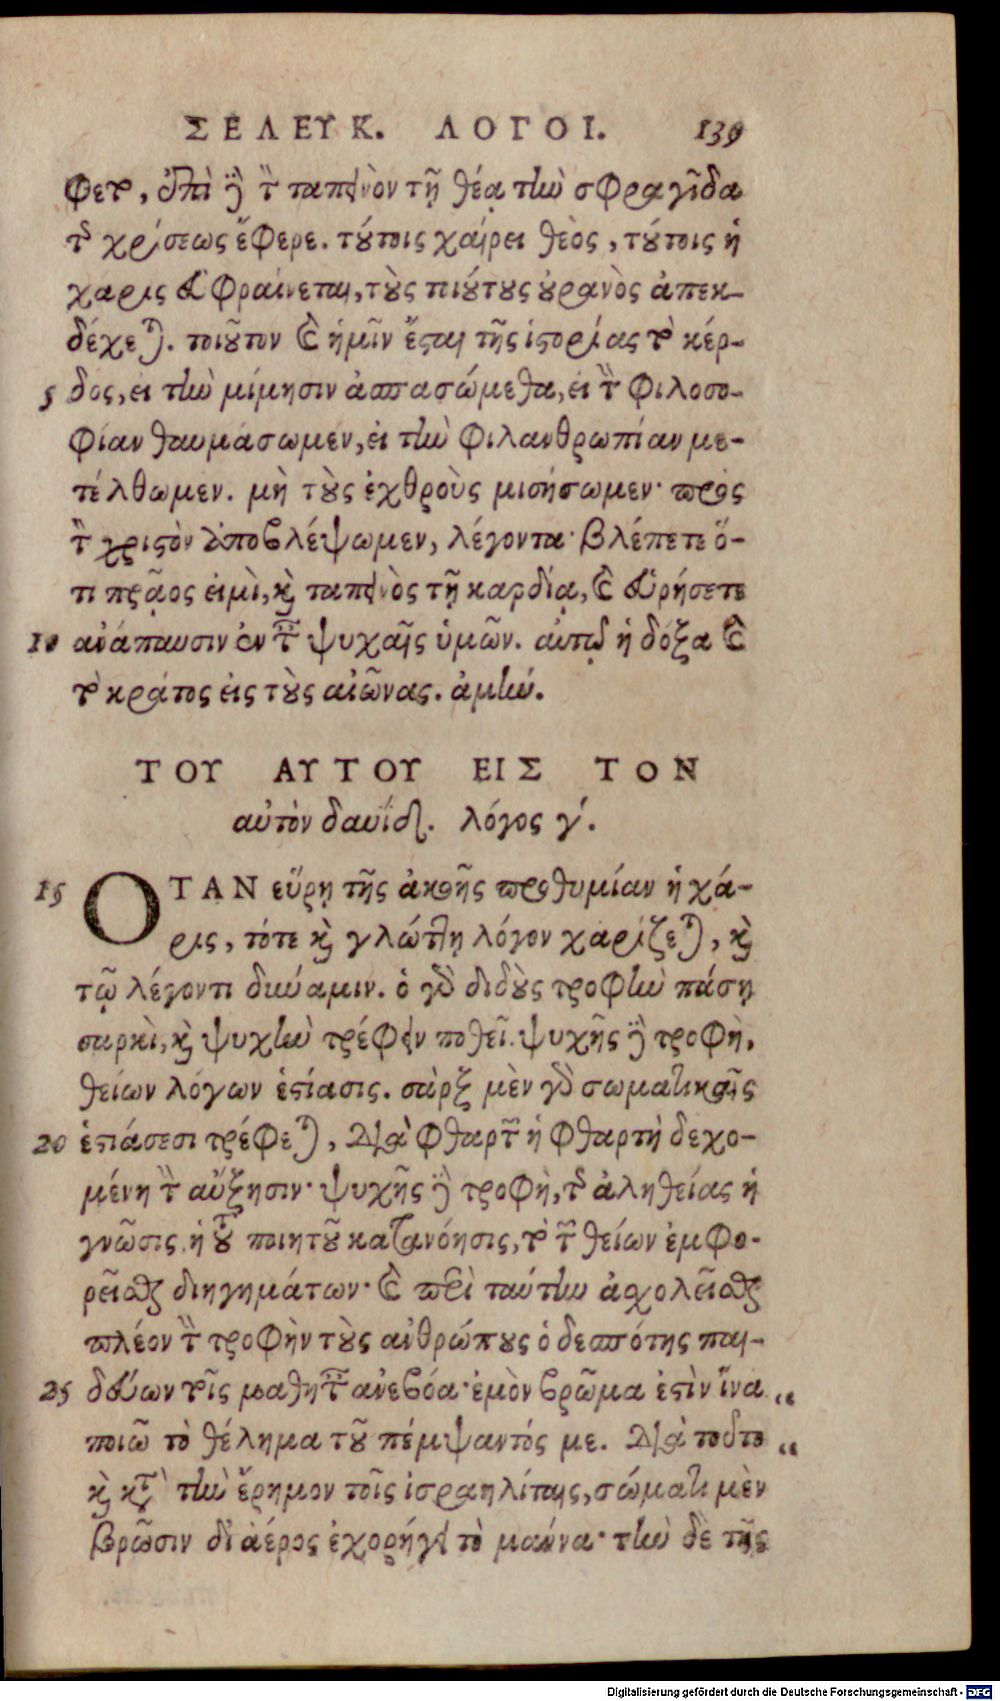 ΣΕΛΕΥΚ. ΛΟΓΟΙ. 139
φετο, ἐπὶ δὲ τὸν ταπεινὸν τῇ θέᾳ τὴν σφραγῖδα
τῆς χρίσεως ἔφερε. τούτοις χαίρει θεὸς, τούτοις ἡ
χάρις εὐφραίνεται, τοὺς τοιούτους οὐρανὸς ἀπεκ-
δέχεται. τοιοῦτον καὶ ἡμῖν ἔσται τῆς ἱστορίας τὸ κέρ-
5 δος, εἰ τὴν μίμησιν ἀσπασώμεθα, εἰ τὴν φιλοσο-
φίαν θαυμάσωμεν, εἰ τὴν φιλανθρωπίαν με-
τέλθωμεν. μὴ τοὺς ἐχθροὺς μισήσωμεν· πρὸς
τὸν χριστὸν ἀποβλέψωμεν, λέγοντα· βλέπετε ὅ-
τι πρᾷός εἰμὶ, καὶ ταπεινὸς τῇ καρδίᾳ, καὶ εὑρήσετε
10 ἀνάπαυσιν ἐν ταῖς ψυχαῖς ὑμῶν. αὐτῷ ἡ δόξα καὶ
τὸ κράτος εἰς τοὺς αἰῶνας. ἀμήν.
ΤΟΥ ΑΥΤΟΥ ΕΙΣ ΤΟΝ
αὐτὸν δαυίδ. λόγος γ΄.
15 ΟΤΑΝ εὕρῃ τῆς ἀκοῆς προθυμίαν ἡ χά-
ρις, τότε καὶ γλώττῃ λόγον χαρίζεται, καὶ
τῷ λέγοντι δύναμιν. ὁ γὰρ διδοὺς τροφὴν πάσῃ
σαρκὶ, καὶ ψυχὴν τρέφειν ποθεῖ. ψυχῆς δὲ τροφὴ,
θείων λόγων ἑστίασις. σὰρξ μὲν γὰρ σωματικαῖς
20 ἑστιάσεσι τρέφεται, διὰ φθαρτῶν ἡ φθαρτὴ δεχο-
μένη τὴν αὔξησιν· ψυχῆς δὲ τροφὴ, τῆς ἀληθείας ἡ
γνῶσις, ἡ τοῦ ποιητοῦ κατανόησις, τὸ τῶν θείων ἐμφο-
ρεῖσθαι διηγημάτων· καὶ περὶ ταύτην ἀσχολεῖσθαι
πλέον τὴν τροφὴν τοὺς ἀνθρώπους ὁ δεσπότης παι-
25 δεύων τοῖς μαθηταῖς ἀνεβόα· ἐμὸν βρῶμα ἐστὶν ἵνα „
ποιῶ τὸ θέλημα τοῦ πέμψαντός με. διὰ τοῦτο „
καὶ κατὰ τὴν ἔρημον τοῖς ἰσραηλίταις, σώματι μὲν
βρῶσιν δι᾽ ἀέρος ἐχορήγει τὸ μάννα· τὴν δὲ τῆς
Digitalisierung gefördert durch die Deutsche Forschungsgemeinschaft - DFG